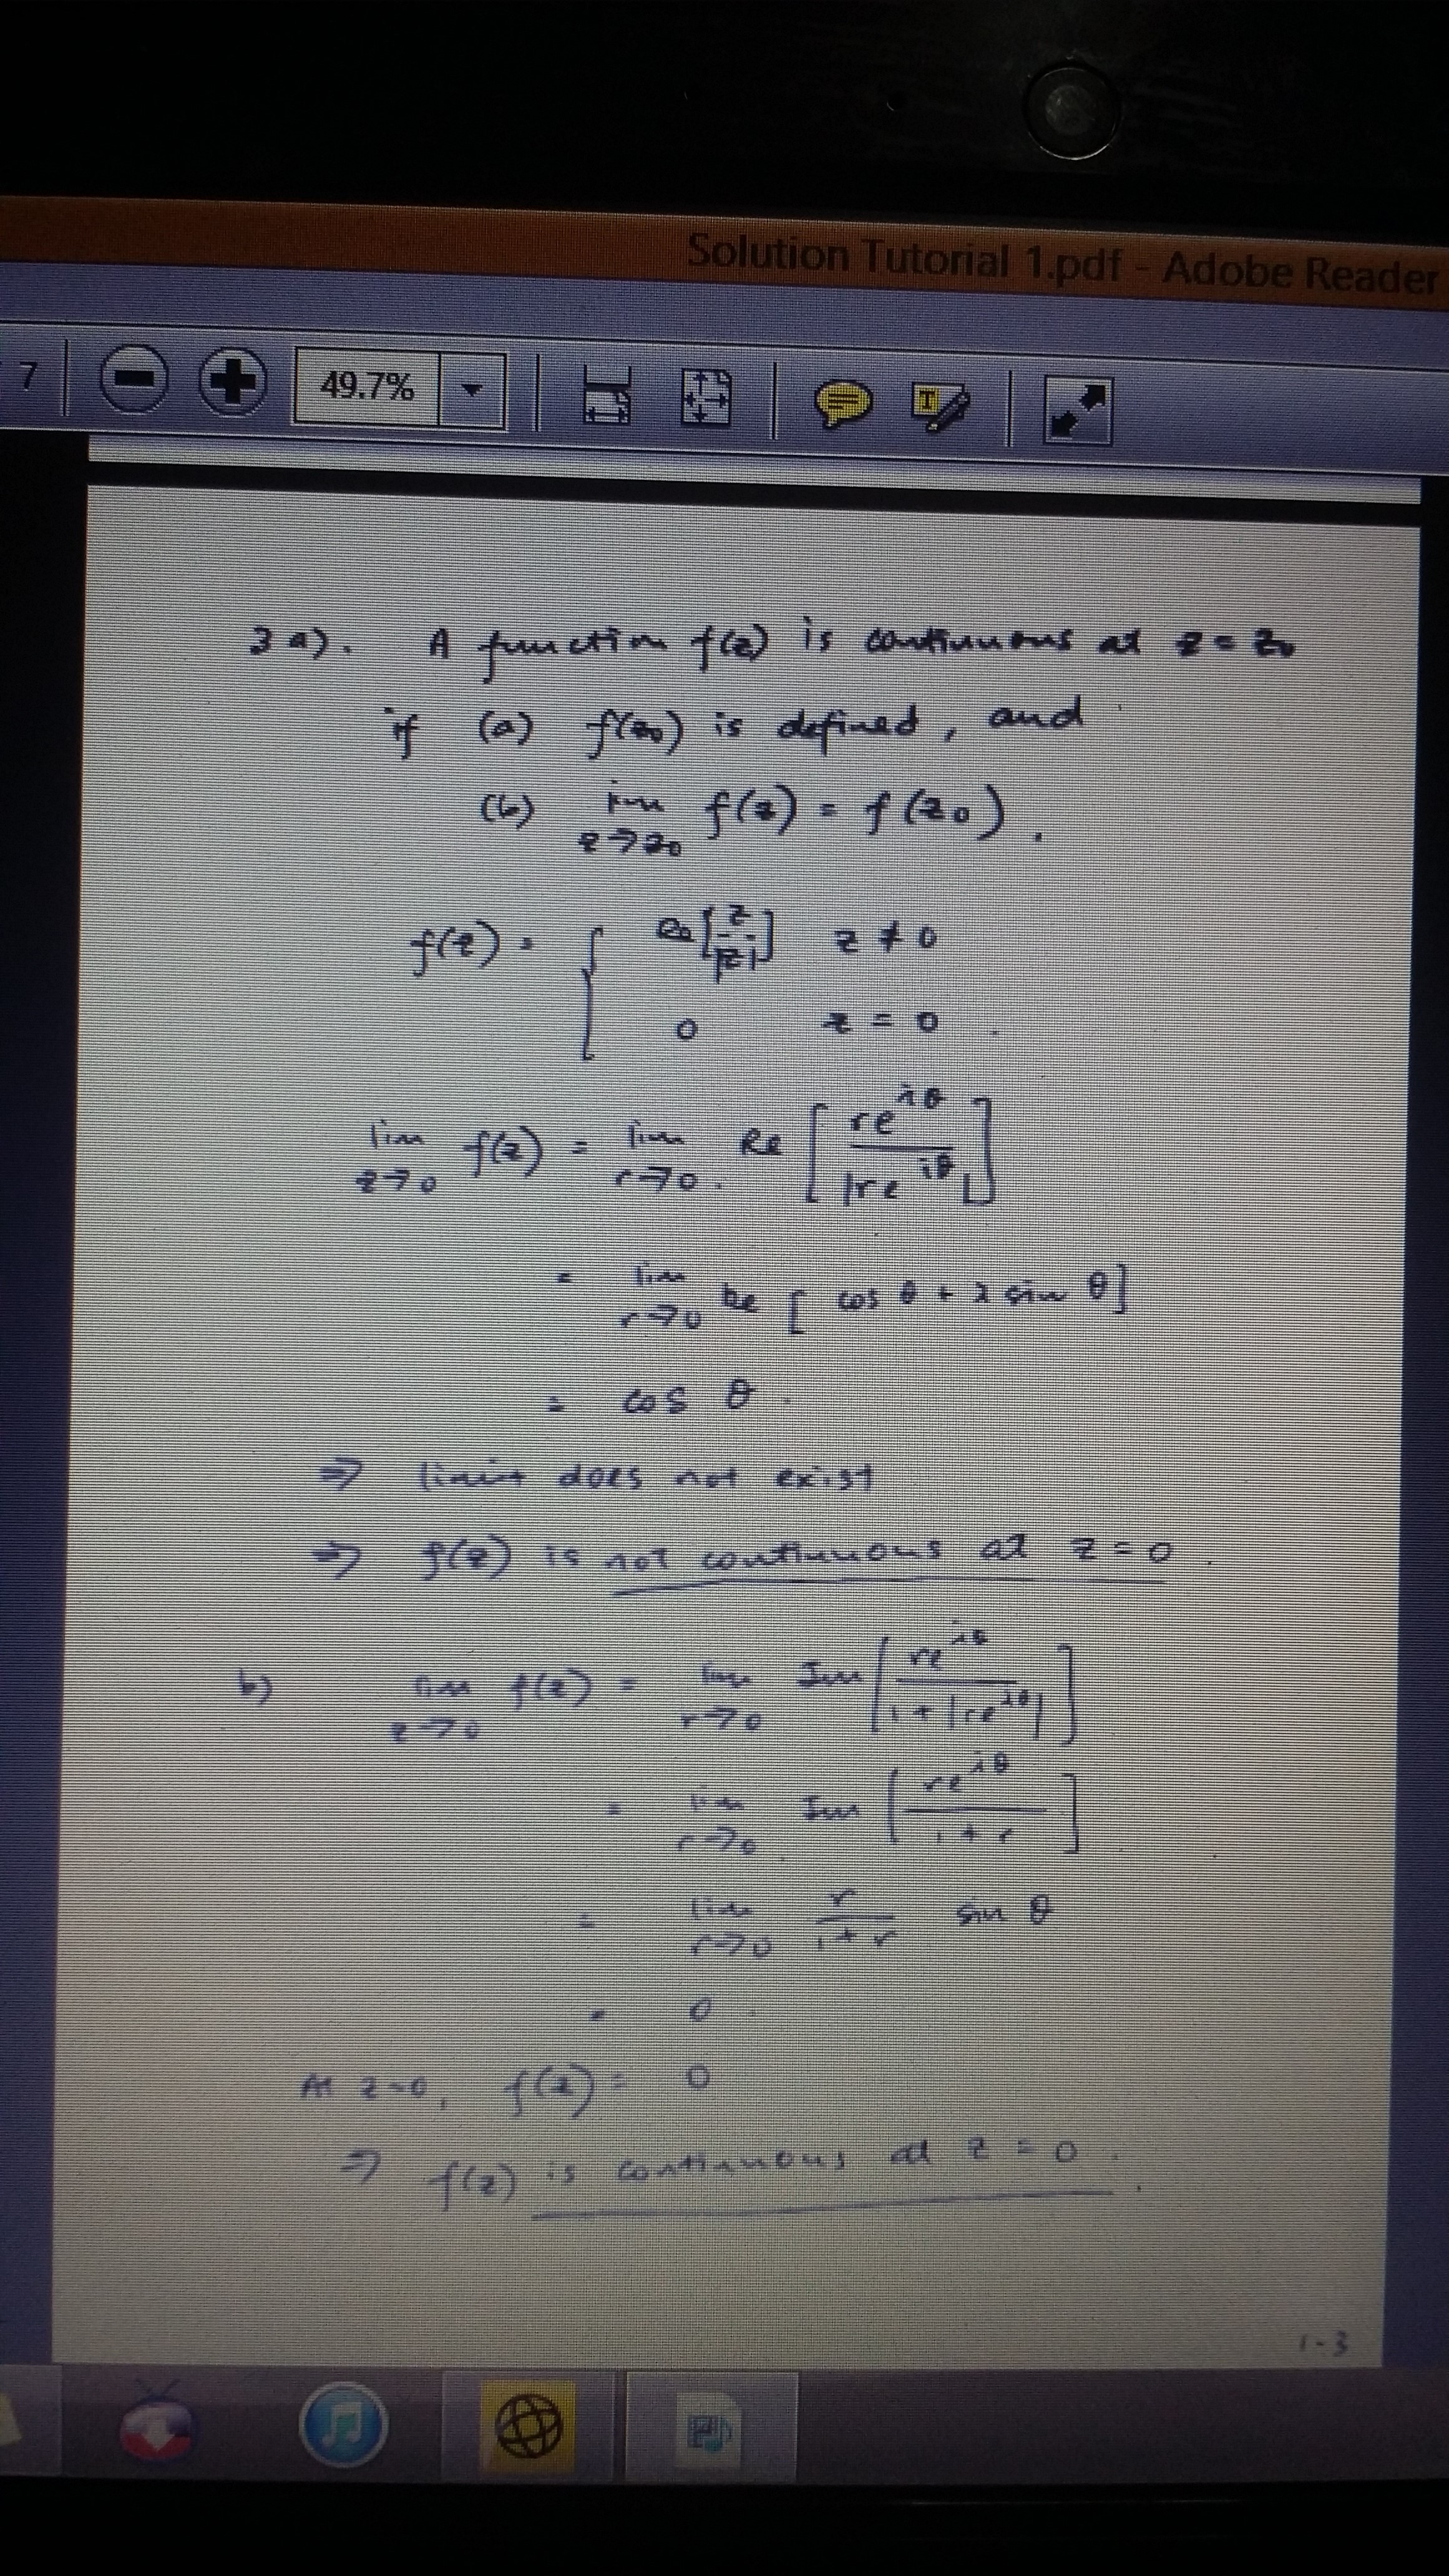 Solution Tutorial 1.pdf - Adobe Reader
7 49.7%
3 a). A function f(z) is continuous at z = z₀
if (a) f(z₀) is defined, and
(b) lim z→z₀ f(z) = f(z₀).
f(z) = { Re[z/|z|] z ≠ 0
0 z = 0.
lim z→0 f(z) = lim r→0. Re [re^{iθ}/|re^{iθ}|]
= lim r→0 Re [cos θ + i sin θ]
= cos θ.
⇒ limit does not exist
⇒ f(z) is not continuous at z = 0.
b) lim z→0 f(z) = lim r→0 Im [re^{iθ}/1+|re^{iθ}|]
= lim r→0 Im [re^{iθ}/1+r]
= lim r→0 r/1+r sin θ
= 0.
At z=0, f(z) = 0
⇒ f(z) is continuous at z = 0.
1-3